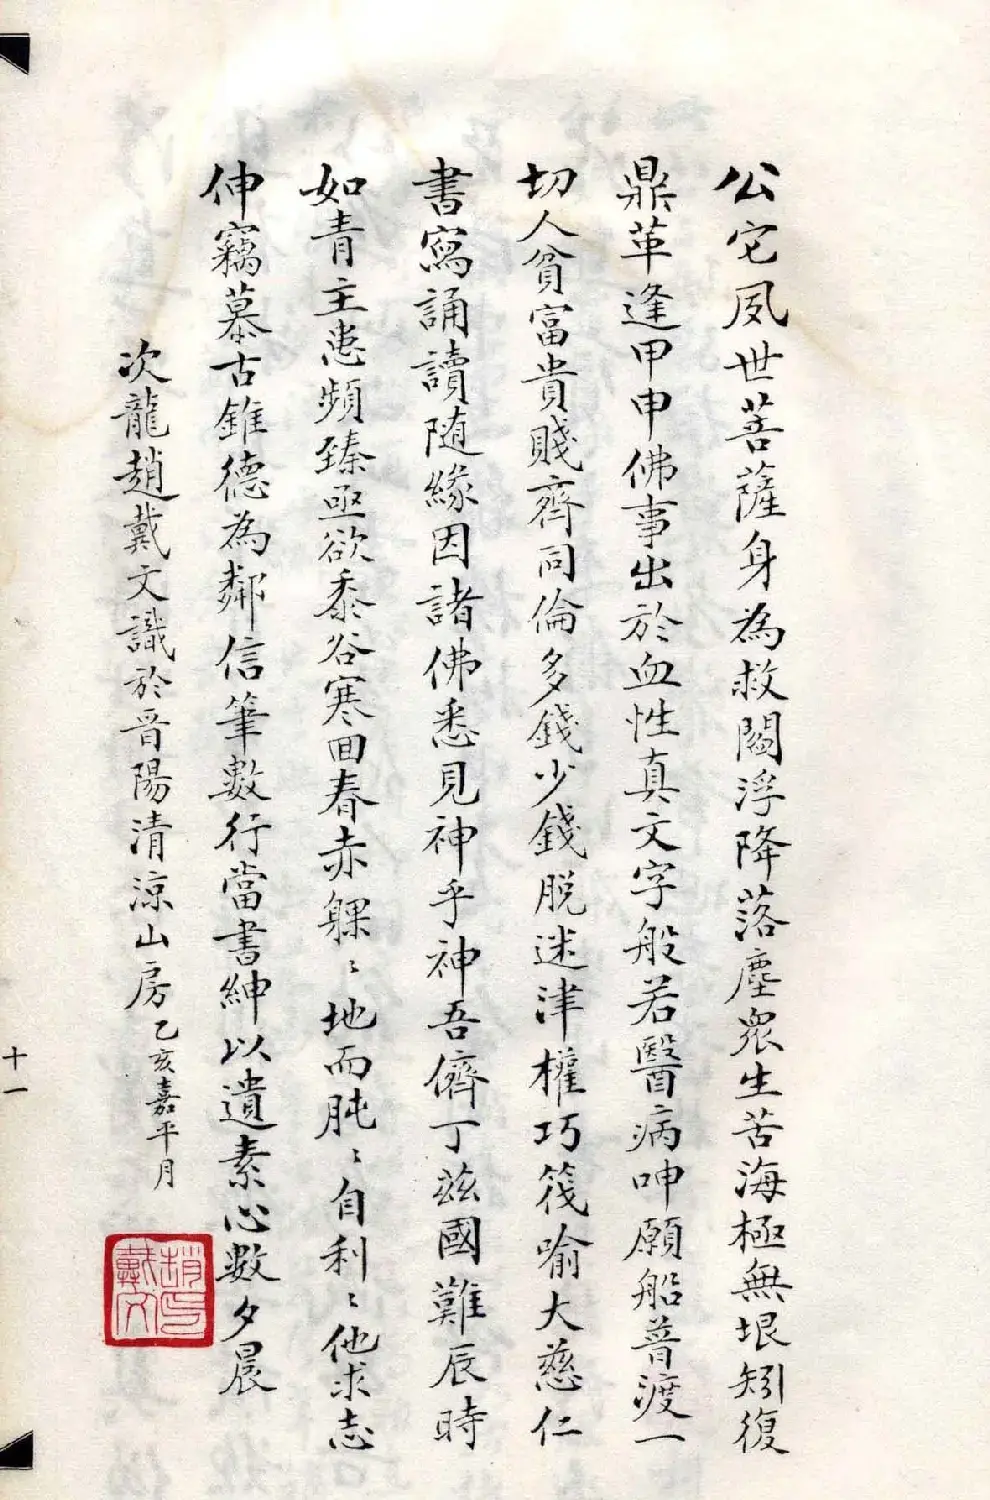 公它夙世菩薩身為救閻浮降落塵眾生苦海極無垠矧復
鼎革逢甲申佛事出於血性真文字般若醫病呻願船普渡一
切人貧富貴賤齊同倫多錢少錢脱迷津權巧筏喻大慈仁
書寫誦讀随緣因諸佛悉見神乎神吾儕丁茲國難辰時
如青主患頻臻亟欲黍谷寒回春赤躶〻地而肫〻自利〻他求志
伸竊慕古錐德為鄰信筆數行當書紳以遺素心數夕晨
次龍趙戴文識於晋陽清涼山房乙亥嘉平月
趙戴文印
十一